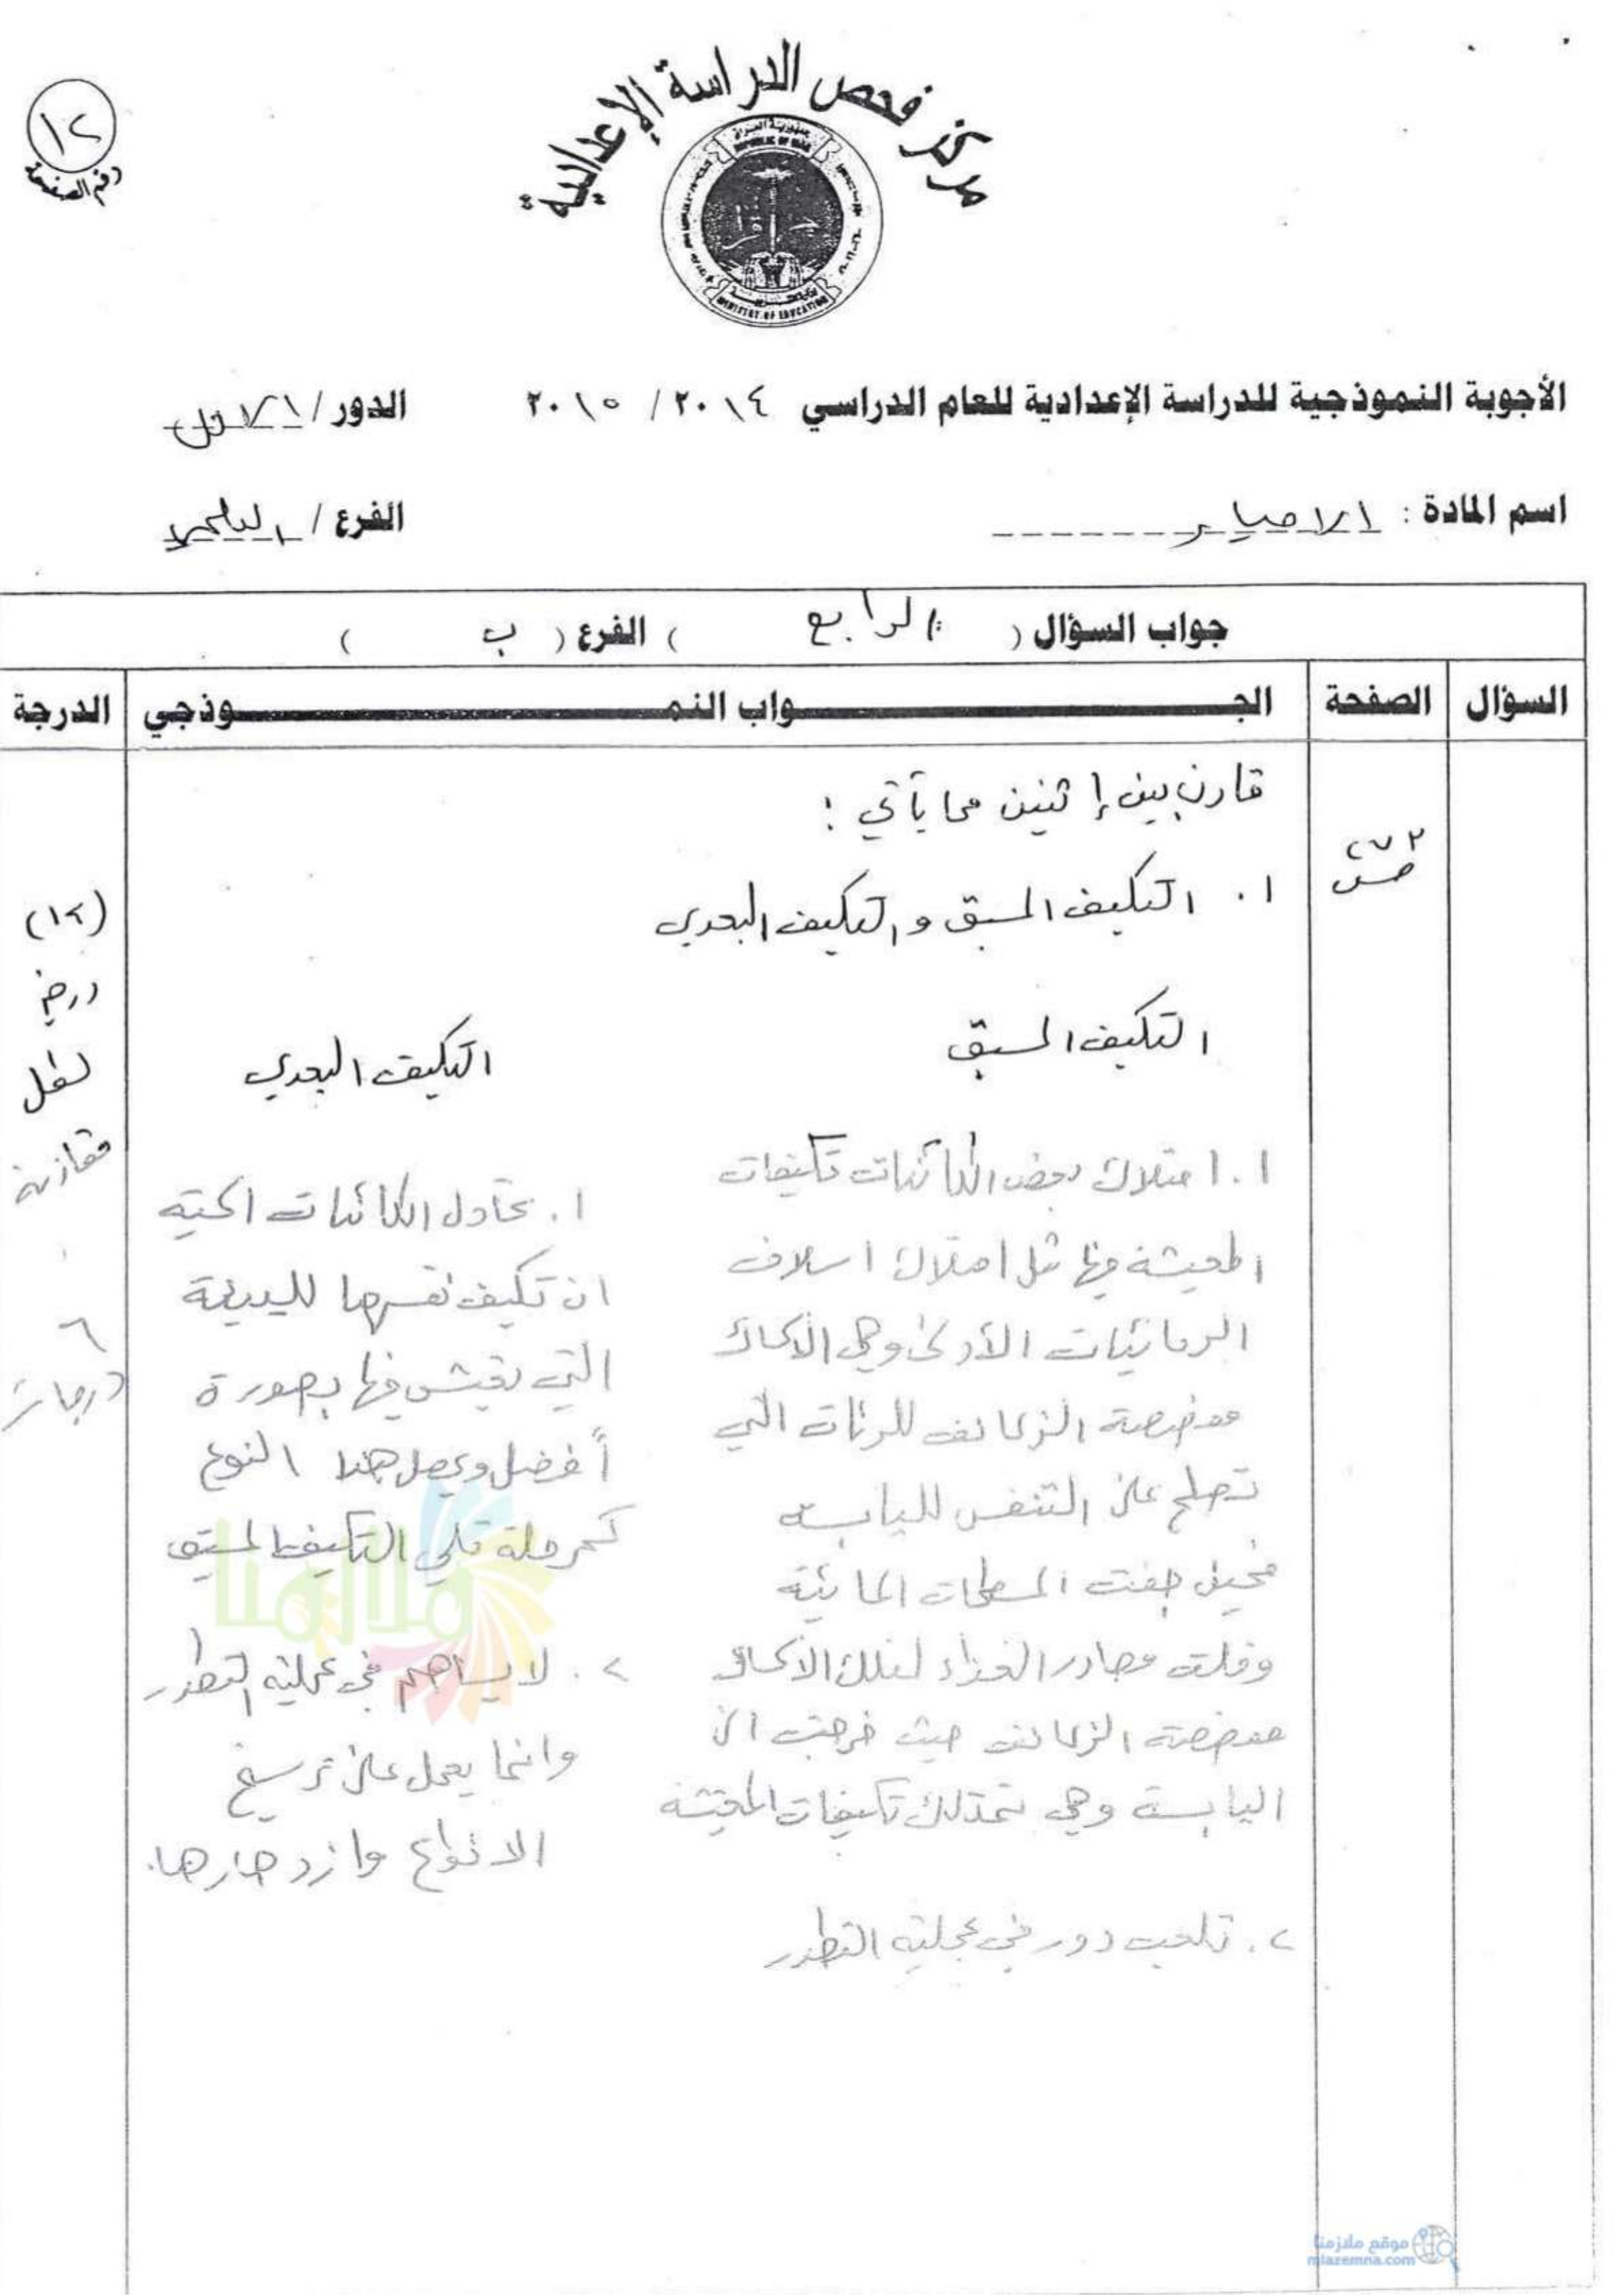 مركز فحص الدراسة الإعدادية
جمهورية العراق
REPUBLIC OF IRAQ
MINISTRY OF EDUCATION
١٢
رقم الصفحة
الأجوبة النموذجية للدراسة الإعدادية للعام الدراسي ٢٠١٤ / ٢٠١٥ الدور / الاول
اسم المادة : الاحياء الفرع / العلمي
جواب السؤال ( الرابع ) الفرع ( ب )
السؤال الصفحة الجـواب النمـوذجي الدرجة
قارن بين إثنين مما يأتي :
ص ٢٧٢
١. التكيف المسبق والتكيف البعدي
(١٢)
درجة
لكل
مقارنة
٦
درجات
التكيف المسبق
١. امتلاك بعض الكائنات تكيفات
المعيشة فيها مثل امتلاك اسلاف
البرمائيات الأولى وهي الأسماك
مفصصة الزعانف للرئات التي
تصلح على التنفس لليابسة
فحين جفت المسطحات المائية
وقلت مصادر الغذاء لتلك الاسماك
مفصصة الزعانف حيث خرجت الى
اليابسة وهي تمتلك تكيفات المعيشة
٢. تلعب دور في عملية التطور
التكيف البعدي
١. تحاول الكائنات الحية
ان تكيف نفسها للبيئة
التي تعيش فيها بصورة
أفضل ويحصل هذا النوع
كمرحلة تلي التكيف المسبق
٢. لا يساهم في عملية التطور
وانما يعمل على ترسيخ
الانواع وازدهارها.
ملازمنا
موقع ملازمنا
mlazemna.com